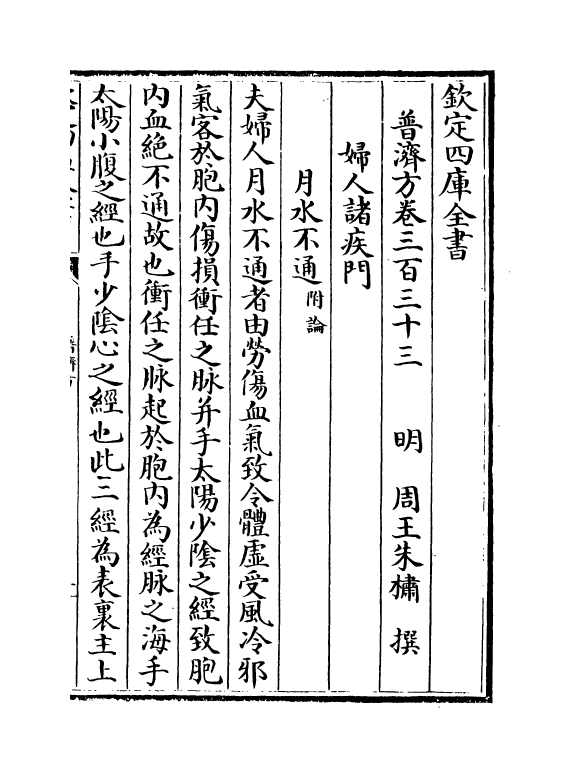 欽定四庫全書
普濟方卷三百三十三　　明　周王朱橚　撰
婦人諸疾門
月水不通附論
夫婦人月水不通者由勞傷血氣致令體虛受風冷邪
氣客於胞内傷損衝任之脉并手太陽少陰之經致胞
内血絶不通故也衝任之脉起於胞内為經脉之海手
太陽小腹之經也手少陰心之經也此三經為表裏主上